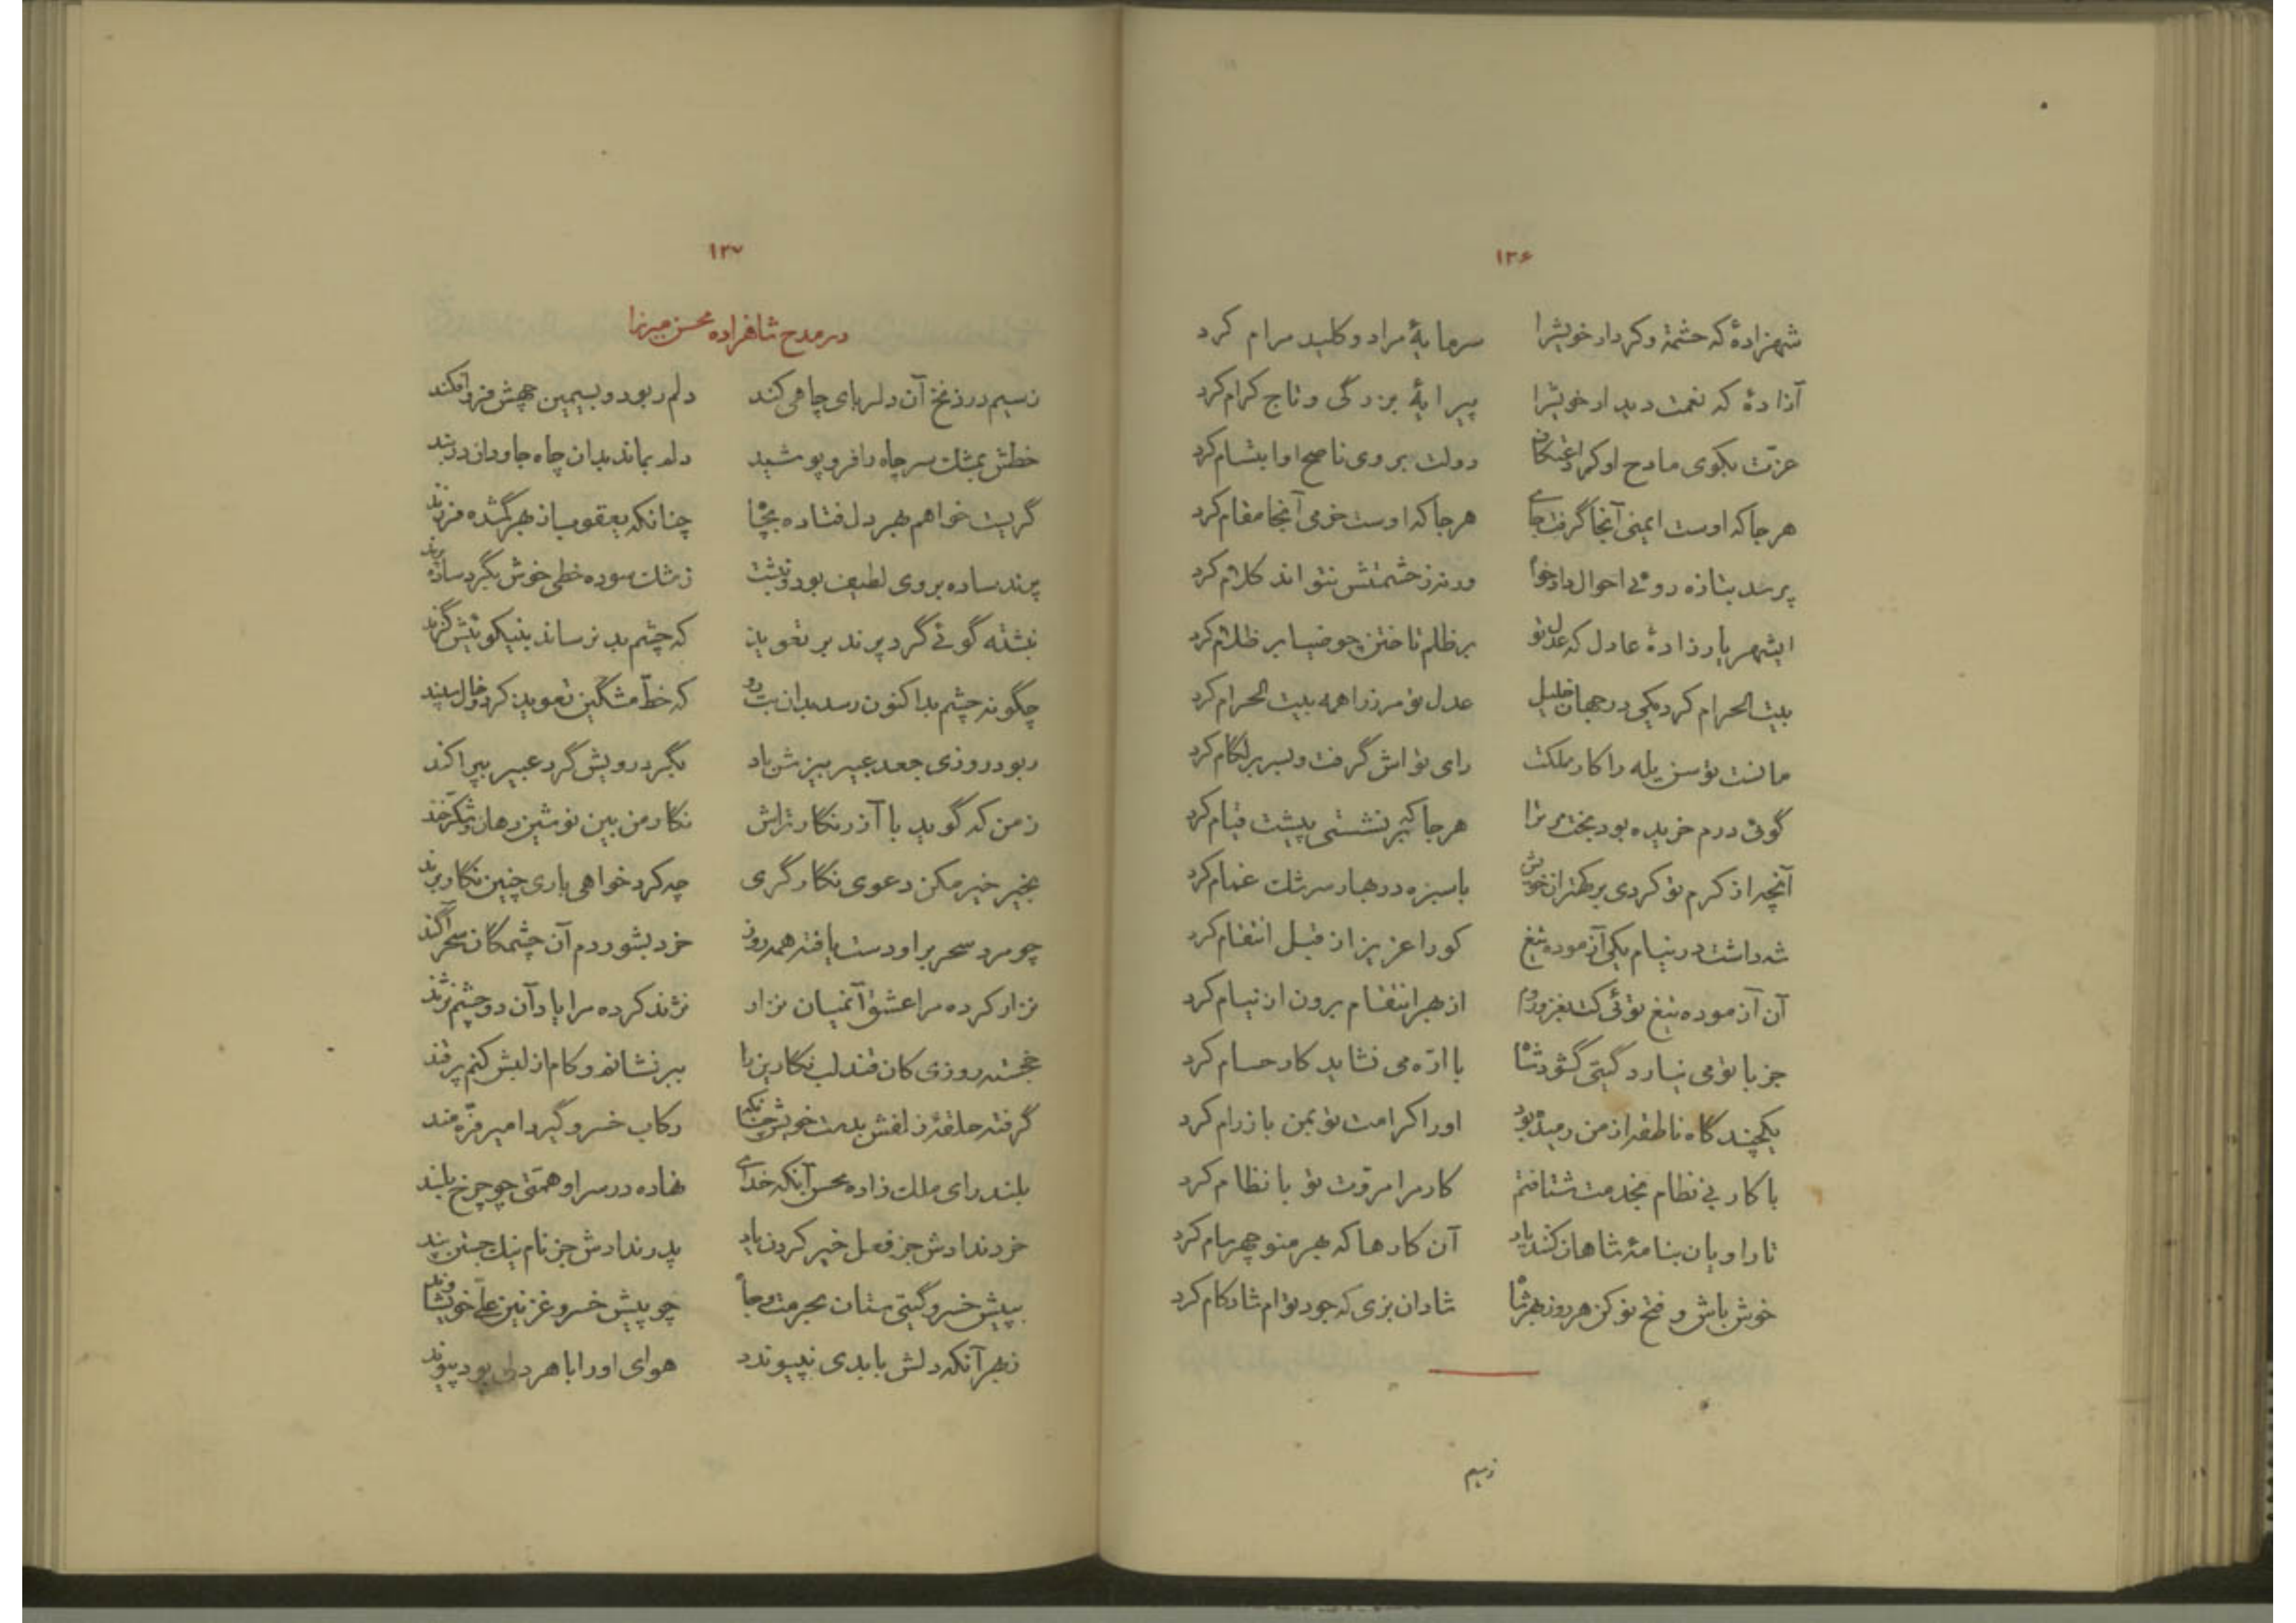 ۱۳۶
شهزادهٔ که حشمت و کردار خویشرا سرمایهٔ مراد و کلید مرام کرد
آزادهٔ که نعمت دیدار خویشرا پیرایهٔ بزرگی و تاج کرام کرد
عزّت بکوی مادح او کرد اعتکاف دولت بروی ناصح او ابتسام کرد
هر جا که اوست ایمنی آنجا گرفت جای هر جا که اوست خرمی آنجا مقام کرد
پرسد بتازه روئی احوال دادخواه ورنه ز حشمتش نتواند کلام کرد
ایشهریار زادهٔ عادل که عدل تو بر ظلم تاختن چو ضیا بر ظلام کرد
بیت الحرام کرد یکی در جهان خلیل عدل تو مرز را همه بیت الحرام کرد
مانست توسن یله را کار مملکت رای تواش گرفت و بسر بر لگام کرد
گوئی درم خریده بود بخت مر ترا هر جا که بر نشستی پیشت قیام کرد
آنچه از کرم تو کردی بر کهتران خویش با سبزه در بهار سرشک غمام کرد
شه داشت در نیام یکی آزموده تیغ کورا عزیز از قبل انتقام کرد
آن آزموده تیغ توئی کت بغز و روم از بهر انتقام برون از نیام کرد
جز با تو می نیارد گیتی گشود شاه با ارّه می نشاید کار حسام کرد
یکچند گاه ناطفه از من رمیده بود او را کرامت تو بمن باز رام کرد
با کار بی نظام بخدمت شتافتم کار مرا مروّت تو با نظام کرد
تا راویان بنامهٔ شاهان کنند یاد آن کارها که بهر منوچهر سام کرد
خوش باش و فتح نو کن هر روز بهر شاه شادان بزی که جود توام شادکام کرد
زسیم
۱۳۷
در مدح شاهزاده محسن میرزا
ز سیم در زنخ آن دلربای چاهی کند دلم ربود و بسیمین چهش فرو افکند
خطش بمشک سر چاه را فرو پوشید دلم بماند بدان چاه جاودان در بند
گریست خواهم بهر دل فتاده بچاه چنانکه یعقوب از بهر گمشده فرزند
پرند ساده بروی لطیف بود و نبشت ز مشک سوده خطی خوش بگرد ساده پرند
نبشته گوئی گرد پرند بر تعویذ که چشم بد نرساند بنیکوئیش گزند
چگونه چشم بد اکنون رسد بدان بت رو که خطّ مشگین تعویذ کرد و خال سپند
ربود روزی جعد عبیر بیزش باد بگرد رویش گرد عبیر بپراکند
ز من که گوید با آذر نگار تراش نگار من بین نوشین دهان و شکّر خند
بخیر خیر مکن دعوی نگارگری چه کرد خواهی باری چنین نگار برند
چو مرد سحر بر او دست یافته همه روز خرد بشوردم آن چشمگان سحر آگند
نزار کرده مرا عشق آنمیان نزار نژند کرده مرا یاد آن دو چشم نژند
خجسته روزی کان قند لب نگارین را ببر نشانم و کام از لبش کنم پر قند
گرفته حلقهٔ زلفش بدست خویش چنانکه رکاب خسرو گیرد امیر فرّه مند
بلند رای ملک زاده محسن آنکه خدای نهاده در سر او همّتی چو چرخ بلند
خرد ندادش جز فعل خیر کردن یاد پدر ندادش جز نام نیک جستن پند
بپیش خسرو گیتی ستان بحرمت و جاه چو پیش خسرو غزنین علی خویشاوند
ز بهر آنکه دلش با بدی نپیوندد هوای او را با هر دلی بود پیوند